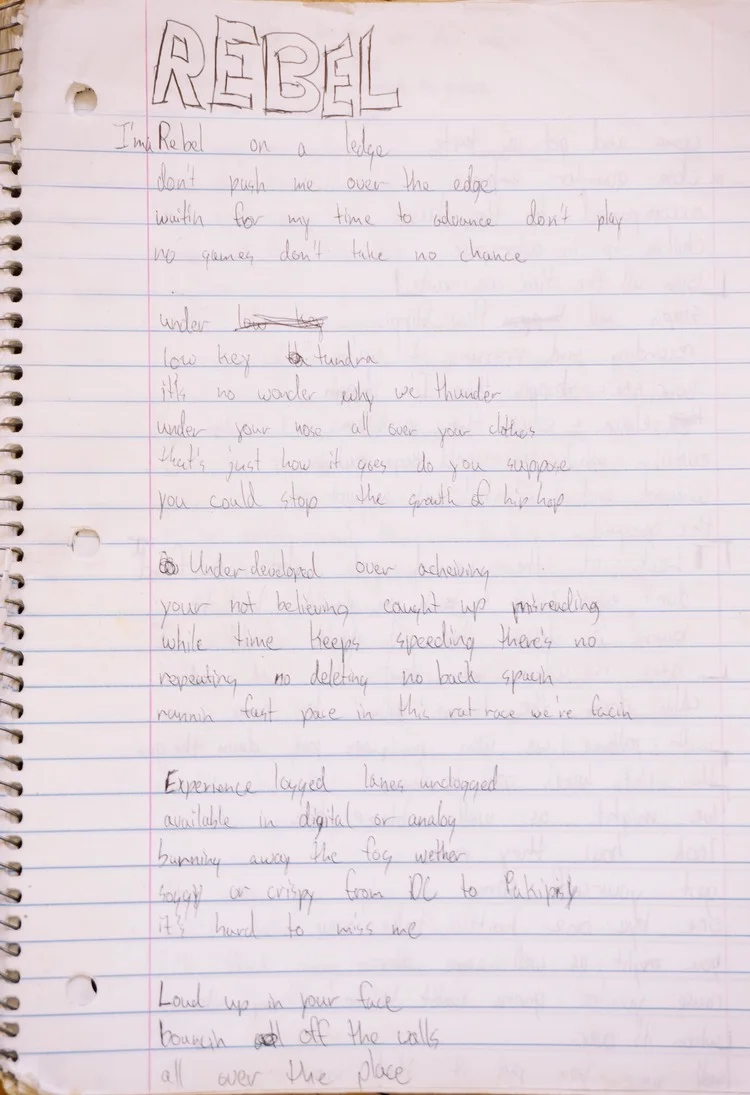 REBEL
I'ma Rebel on a ledge
don't push me over the edge
waitin for my time to advance don't play
no games don't take no chance
under low key
low key tundra
it's no wonder why we thunder
under your nose all over your clothes
that's just how it goes do you suppose
you could stop the growth of hip hop
Under developed over acheiving
your not believing caught up misreading
while time keeps speeding there's no
repeating no deleting no back spacin
runnin fast pase in this rat race we're facin
Experience logged lanes unclogged
available in digital or analog
burning away the fog wether
soggy or crispy from DC to Pakipisy
it's hard to miss me
Loud up in your face
bouncin off the walls
all over the place